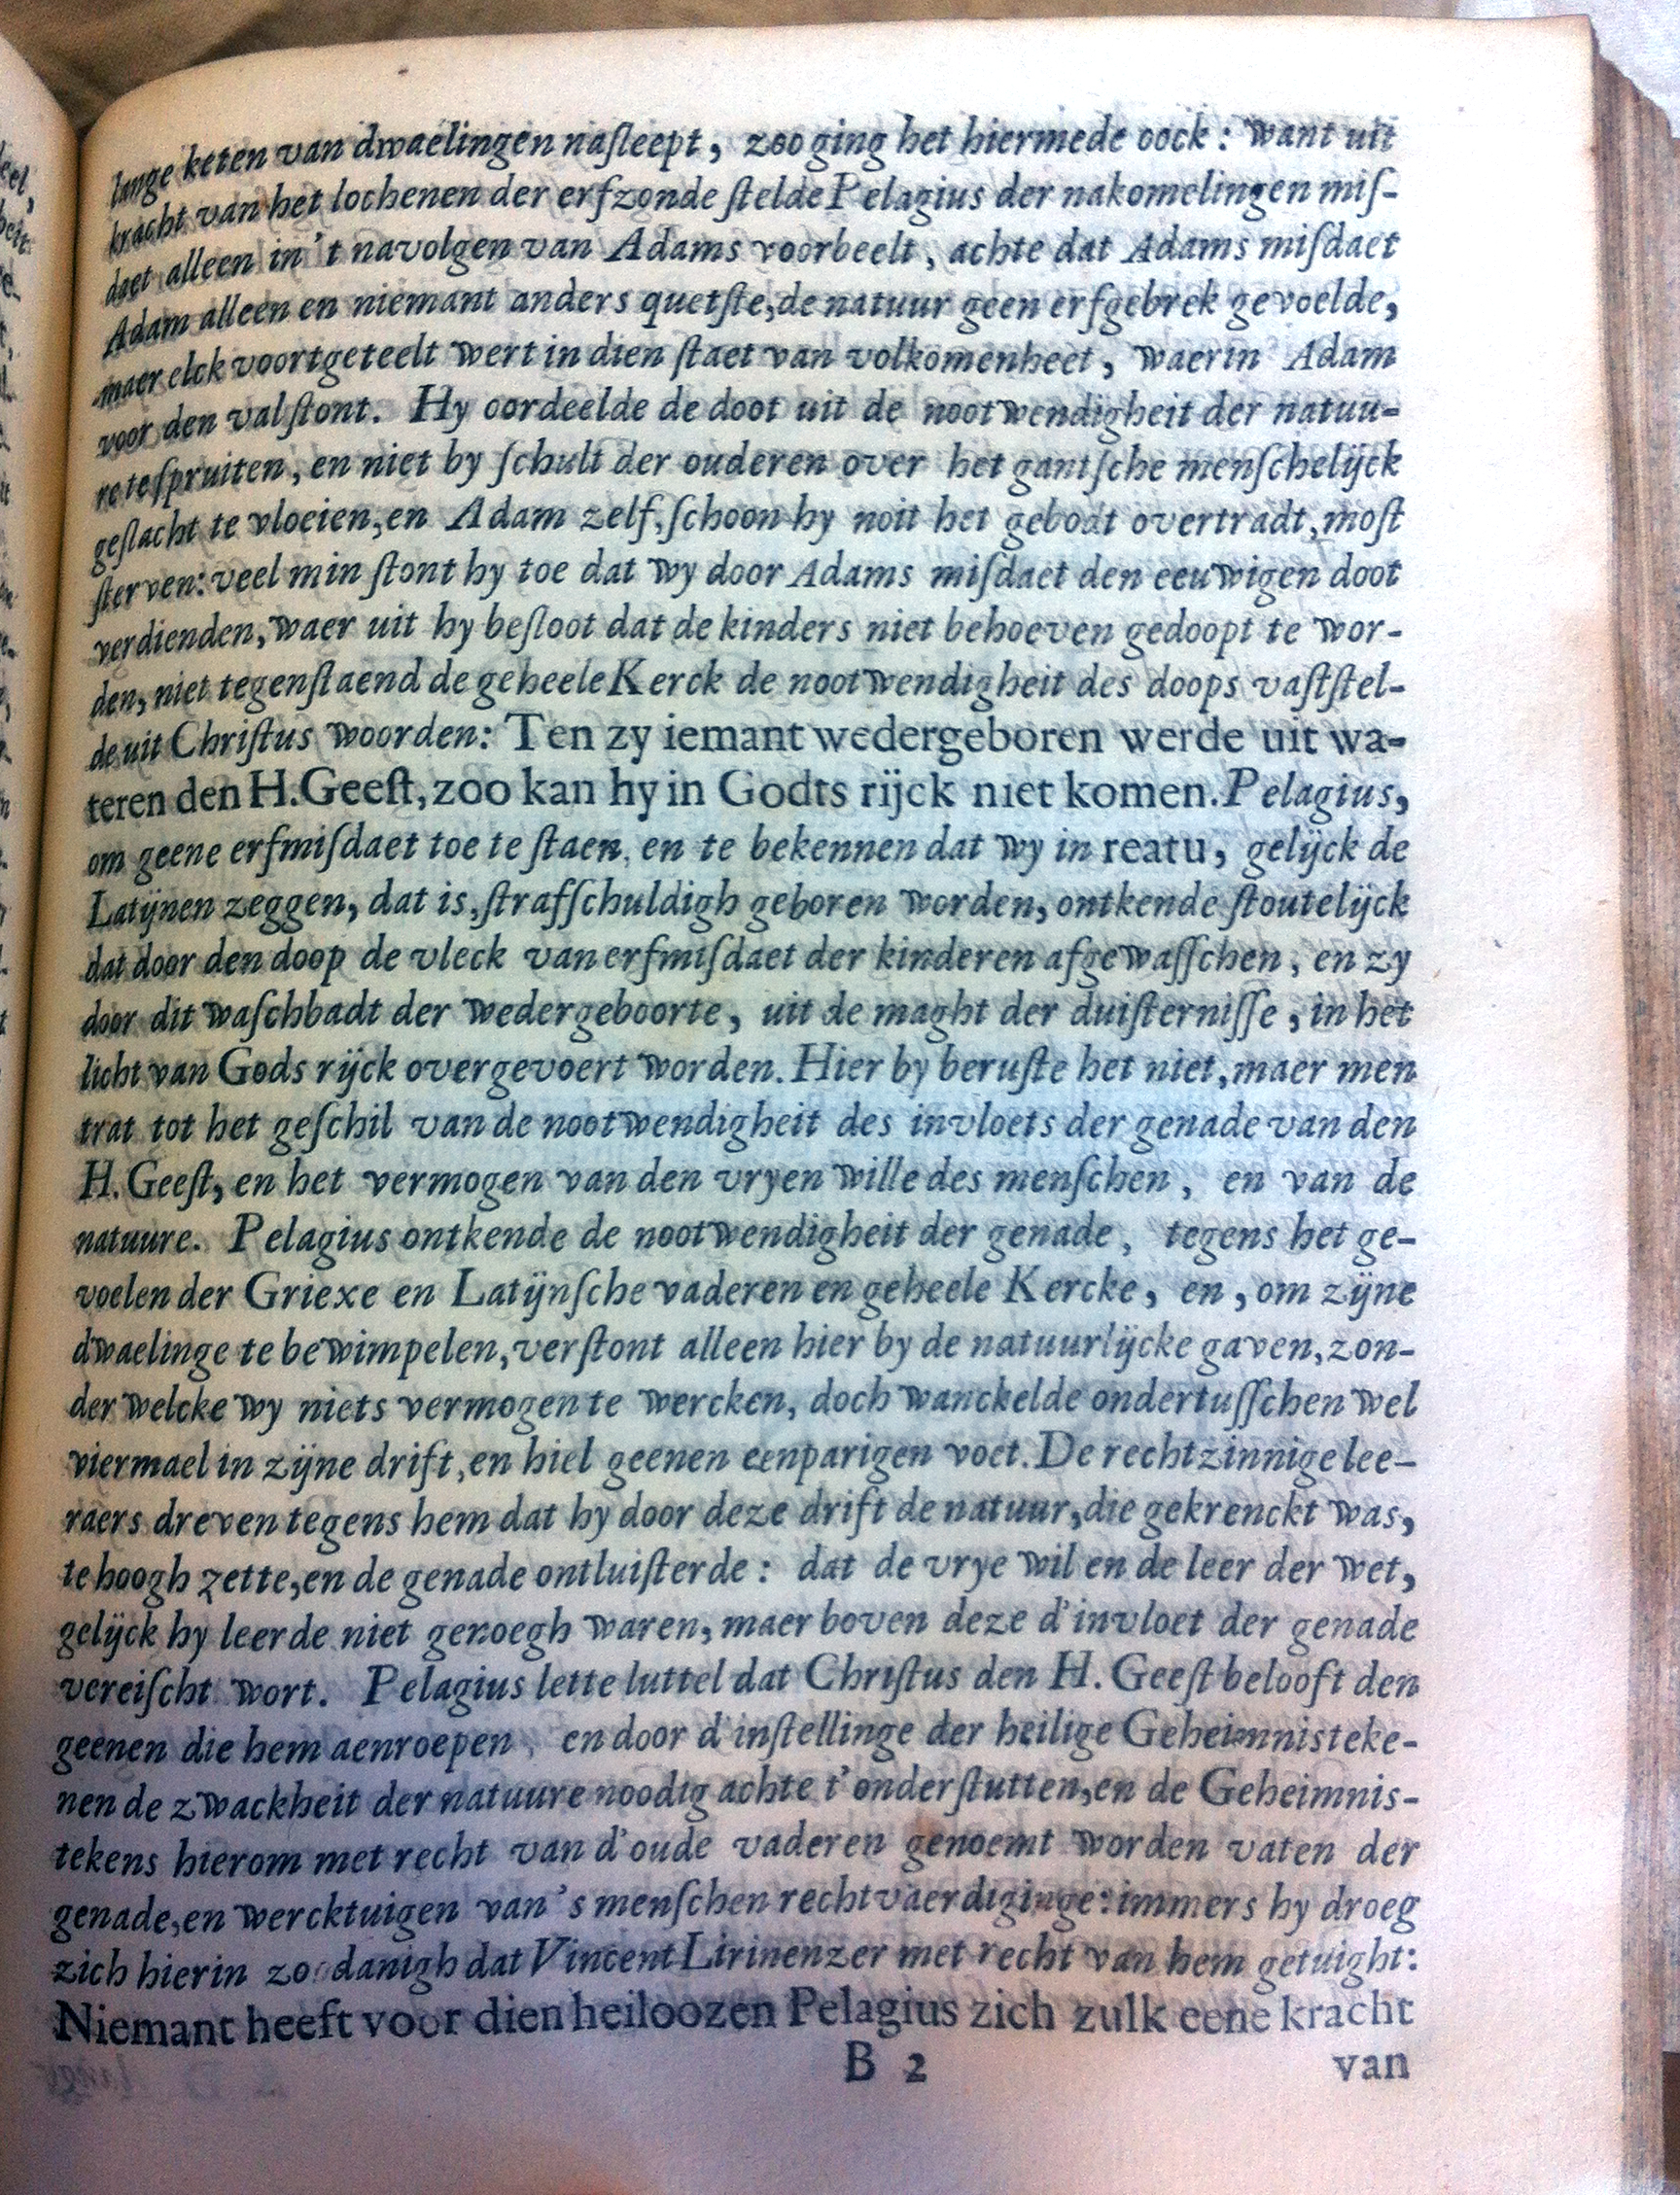 lange keten van dwaelingen naſleept, zoo ging het hiermede oock: want uit
kracht van het lochenen der erfzonde ſtelde Pelagius der nakomelingen miſ-
daet alleen in 't navolgen van Adams voorbeelt, achte dat Adams miſdaet
Adam alleen en niemant anders quetſte, de natuur geen erfgebrek gevoelde,
maer elck voortgeteelt wert in dien ſtaet van volkomenheet, waerin Adam
voor den val ſtont. Hy oordeelde de doot uit de nootwendigheit der natuu-
re te ſpruiten, en niet by ſchult der ouderen over het gantſche menſchelijck
geſlacht te vloeien, en Adam zelf, ſchoon hy noit het gebodt overtradt, moſt
ſterven: veel min ſtont hy toe dat wy door Adams miſdaet den eeuwigen doot
verdienden, waer uit hy beſloot dat de kinders niet behoeven gedoopt te wor-
den, niet tegenſtaend de geheele Kerck de nootwendigheit des doops vaſtſtel-
de uit Chriſtus woorden: Ten zy iemant wedergeboren werde uit wa-
ter en den H. Geeſt, zoo kan hy in Godts rijck niet komen. Pelagius,
om geene erfmiſdaet toe te ſtaen, en te bekennen dat wy in reatu, gelijck de
Latijnen zeggen, dat is, ſtrafſchuldigh geboren worden, ontkende ſtoutelijck
dat door den doop de vleck van erfmiſdaet der kinderen afgewaſſchen, en zy
door dit waſchbadt der wedergeboorte, uit de maght der duiſterniſſe, in het
licht van Gods rijck overgevoert worden. Hier by beruſte het niet, maer men
trat tot het geſchil van de nootwendigheit des invloets der genade van den
H. Geeſt, en het vermogen van den vryen wille des menſchen, en van de
natuure. Pelagius ontkende de nootwendigheit der genade, tegens het ge-
voelen der Griexe en Latijnſche vaderen en geheele Kercke, en, om zijne
dwaelinge te bewimpelen, verſtont alleen hier by de natuurlijcke gaven, zon-
der welcke wy niets vermogen te wercken, doch wanckelde ondertuſſchen wel
viermael in zijne drift, en hiel geenen eenparigen voet. De rechtzinnige lee-
raers dreven tegens hem dat hy door deze drift de natuur, die gekrenckt was,
te hoogh zette, en de genade ontluiſterde: dat de vrye wil en de leer der wet,
gelijck hy leerde niet genoegh waren, maer boven deze d'invloet der genade
vereiſcht wort. Pelagius lette luttel dat Chriſtus den H. Geeſt belooft den
geenen die hem aenroepen, en door d'inſtellinge der heilige Geheimnisteke-
nen de zwackheit der natuure noodig achte t'onderſtutten, en de Geheimnis-
tekens hierom met recht van d'oude vaderen genoemt worden vaten der
genade, en wercktuigen van 's menſchen rechtvaerdiginge: immers hy droeg
zich hierin zoodanigh dat Vincent Lirinenzer met recht van hem getuight:
Niemant heeft voor dien heiloozen Pelagius zich zulk eene kracht
B 2 van